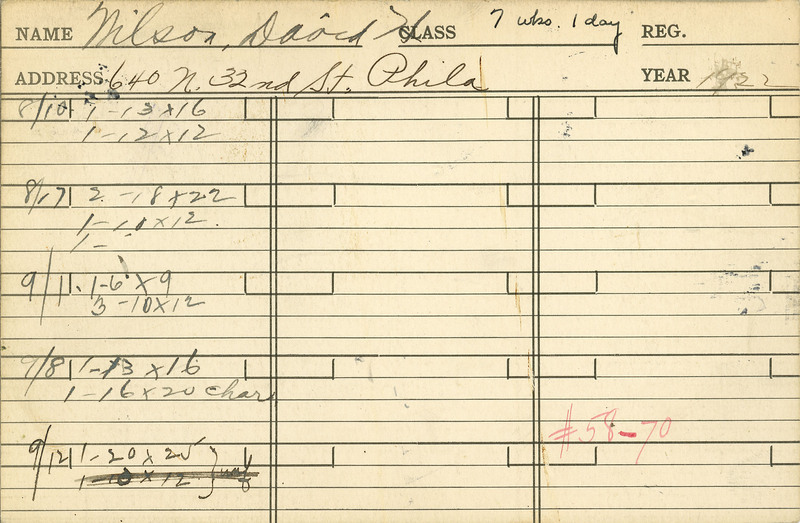 NAME Wilson, David H CLASS 7 wks. 1 day REG.
ADDRESS 640 N. 32nd St. Phila YEAR 1922
8/10 1-13 x 16
1-12 x 12
8/17 2-18 x 22
1-10 x 12.
1-
9/1 1-6 x 9
3-10 x 12
9/8 1-13 x 16
1-16 x 20 char
#58-70
9/12 1-20 x 25
1-10 x 12